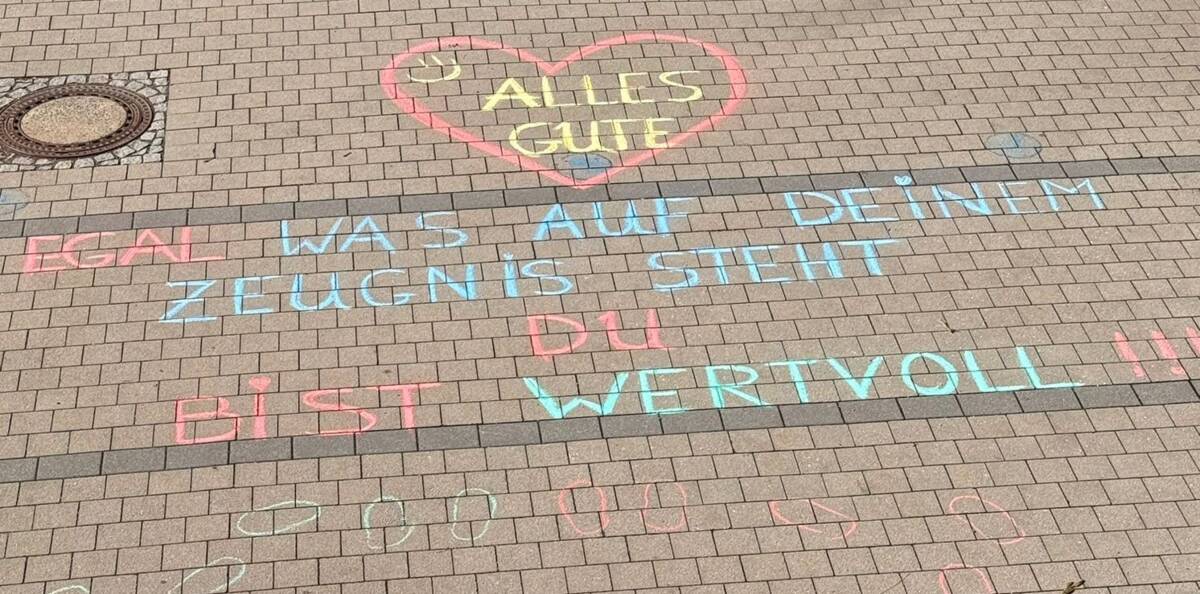 ALLES
GUTE
EGAL WAS AUF DEINEM
ZEUGNIS STEHT
DU
BIST WERTVOLL !!!